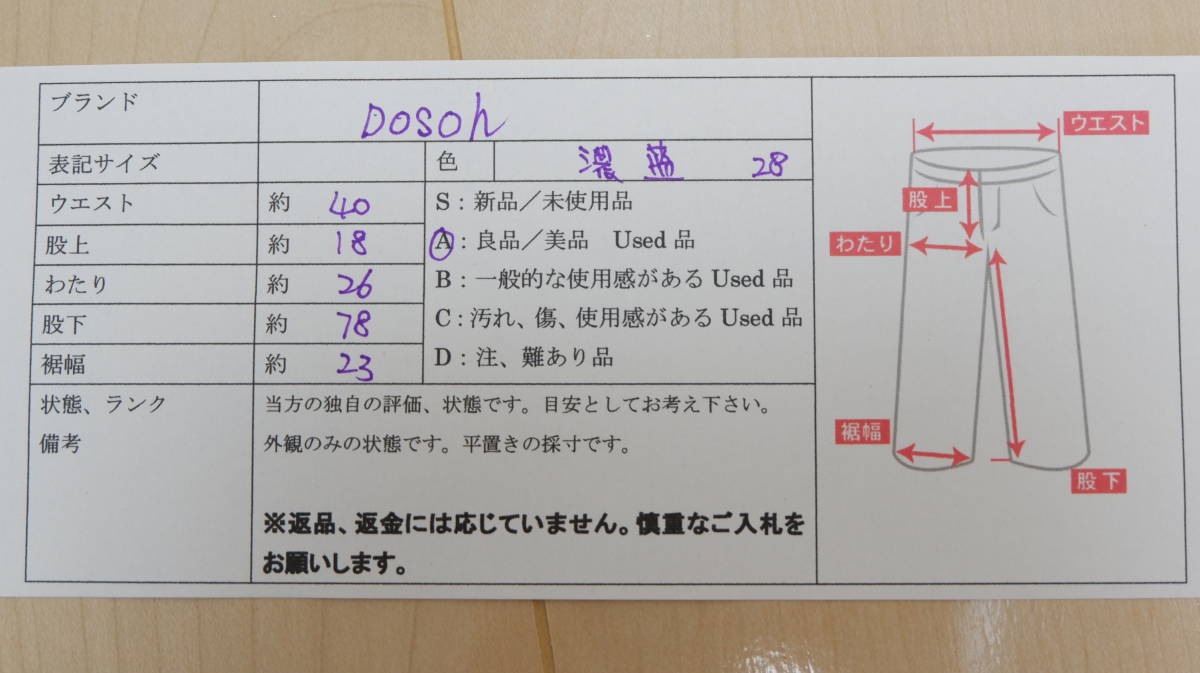 ブランド DOSOh
表記サイズ 色 濃藍 28
ウエスト 約 40 S：新品／未使用品
股上 約 18 A：良品／美品 Used 品
わたり 約 26 B：一般的な使用感がある Used 品
股下 約 78 C：汚れ、傷、使用感がある Used 品
裾幅 約 23 D：注、難あり品
状態、ランク 当方の独自の評価、状態です。目安としてお考え下さい。
備考 外観のみの状態です。平置きの採寸です。
※返品、返金には応じていません。慎重なご入札を
お願いします。
ウエスト
股上
わたり
裾幅
股下